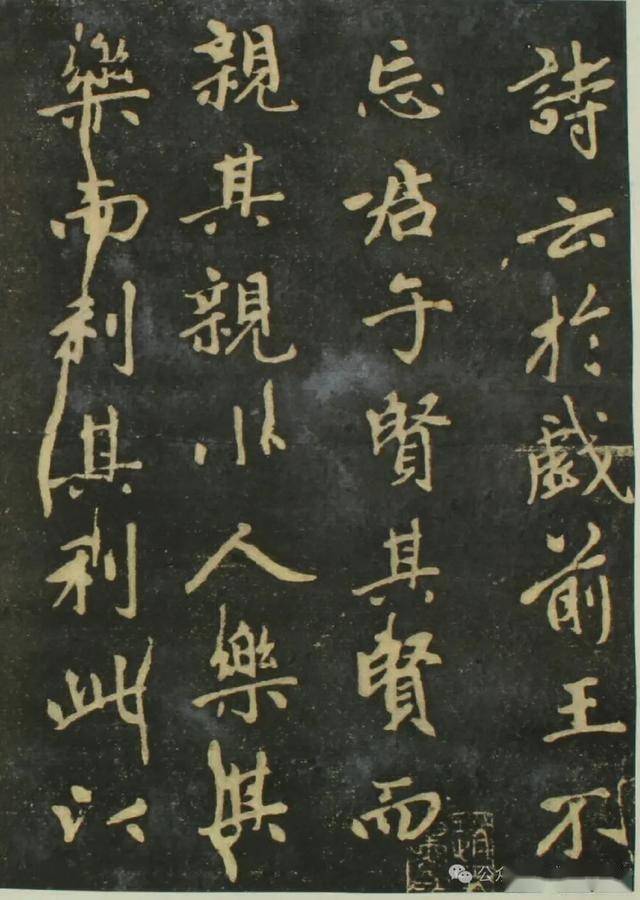 詩云於戲前王不
忘君子賢其賢而
親其親小人樂其
樂而利其利此以
公